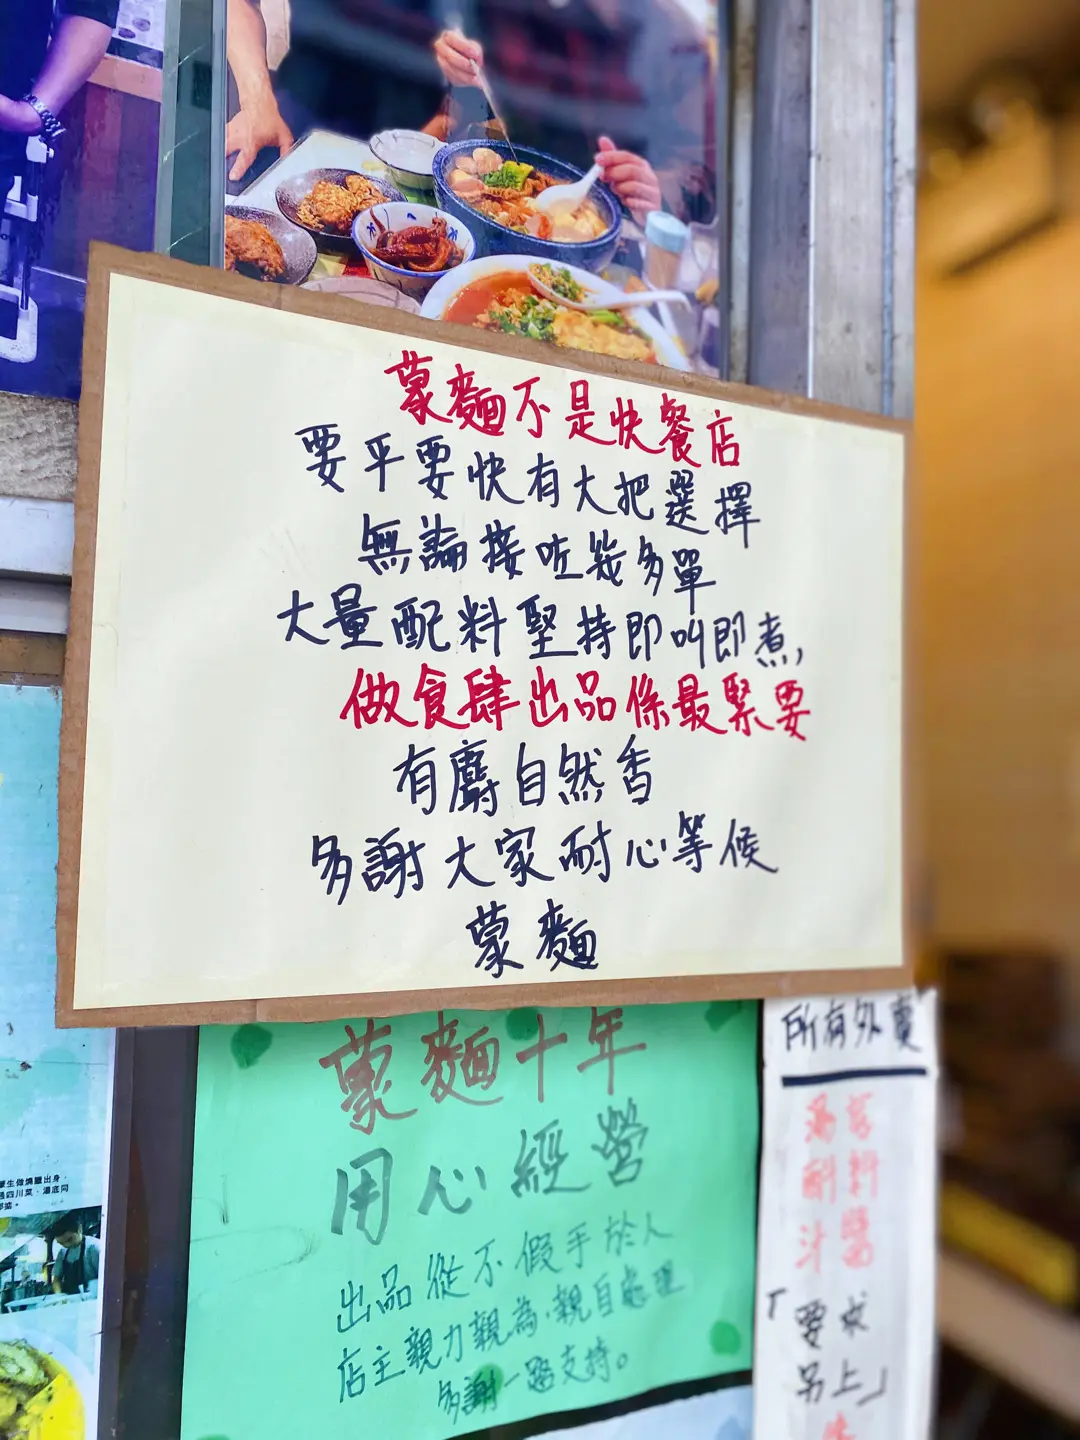 蒙麵不是快餐店
要平要快有大把選擇
無論接咗幾多單
大量配料堅持即叫即煮,
做食肆出品係最緊要
有麝自然香
多謝大家耐心等候
蒙麵
蒙麵十年
用心經營
出品從不假手於人
店主親力親為,親自處理
多謝一路支持。
所有外賣
汁醬
「要求
另上」
四川菜、湯底同